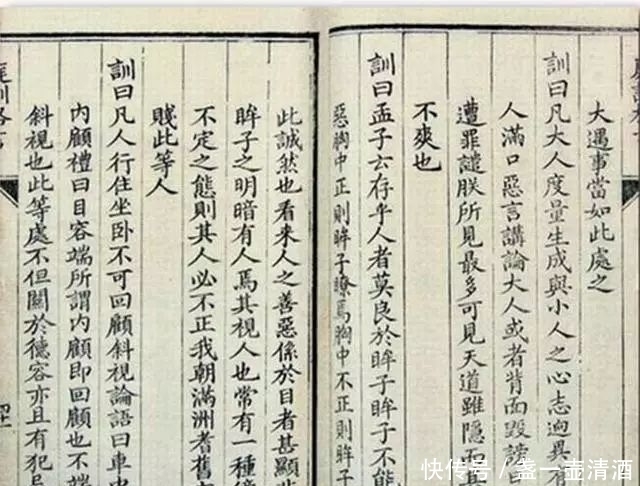 大遇事當如此處之
訓曰凡大人度量生成與小人之心志迥異有
人滿口惡言講論大人或者背面毀謗日
遭罪譴朕所見最多可見天道雖隱而
不爽也
訓曰孟子云存乎人者莫良於眸子眸子不能
惡胸中正則眸子瞭焉胸中不正則眸子
此誠然也看來人之善惡係於目者甚顯
眸子之明暗有人焉其視人也常有一種
不定之態則其人必不正我朝滿洲耆舊
賤此等人
訓曰凡人行住坐卧不可回顧斜視論語曰車
內顧禮曰目容端所謂內顧即回顧也不端
斜視也此等處不但關於德容亦且有犯忌
庭訓格言
快传号／盏一壶清酒